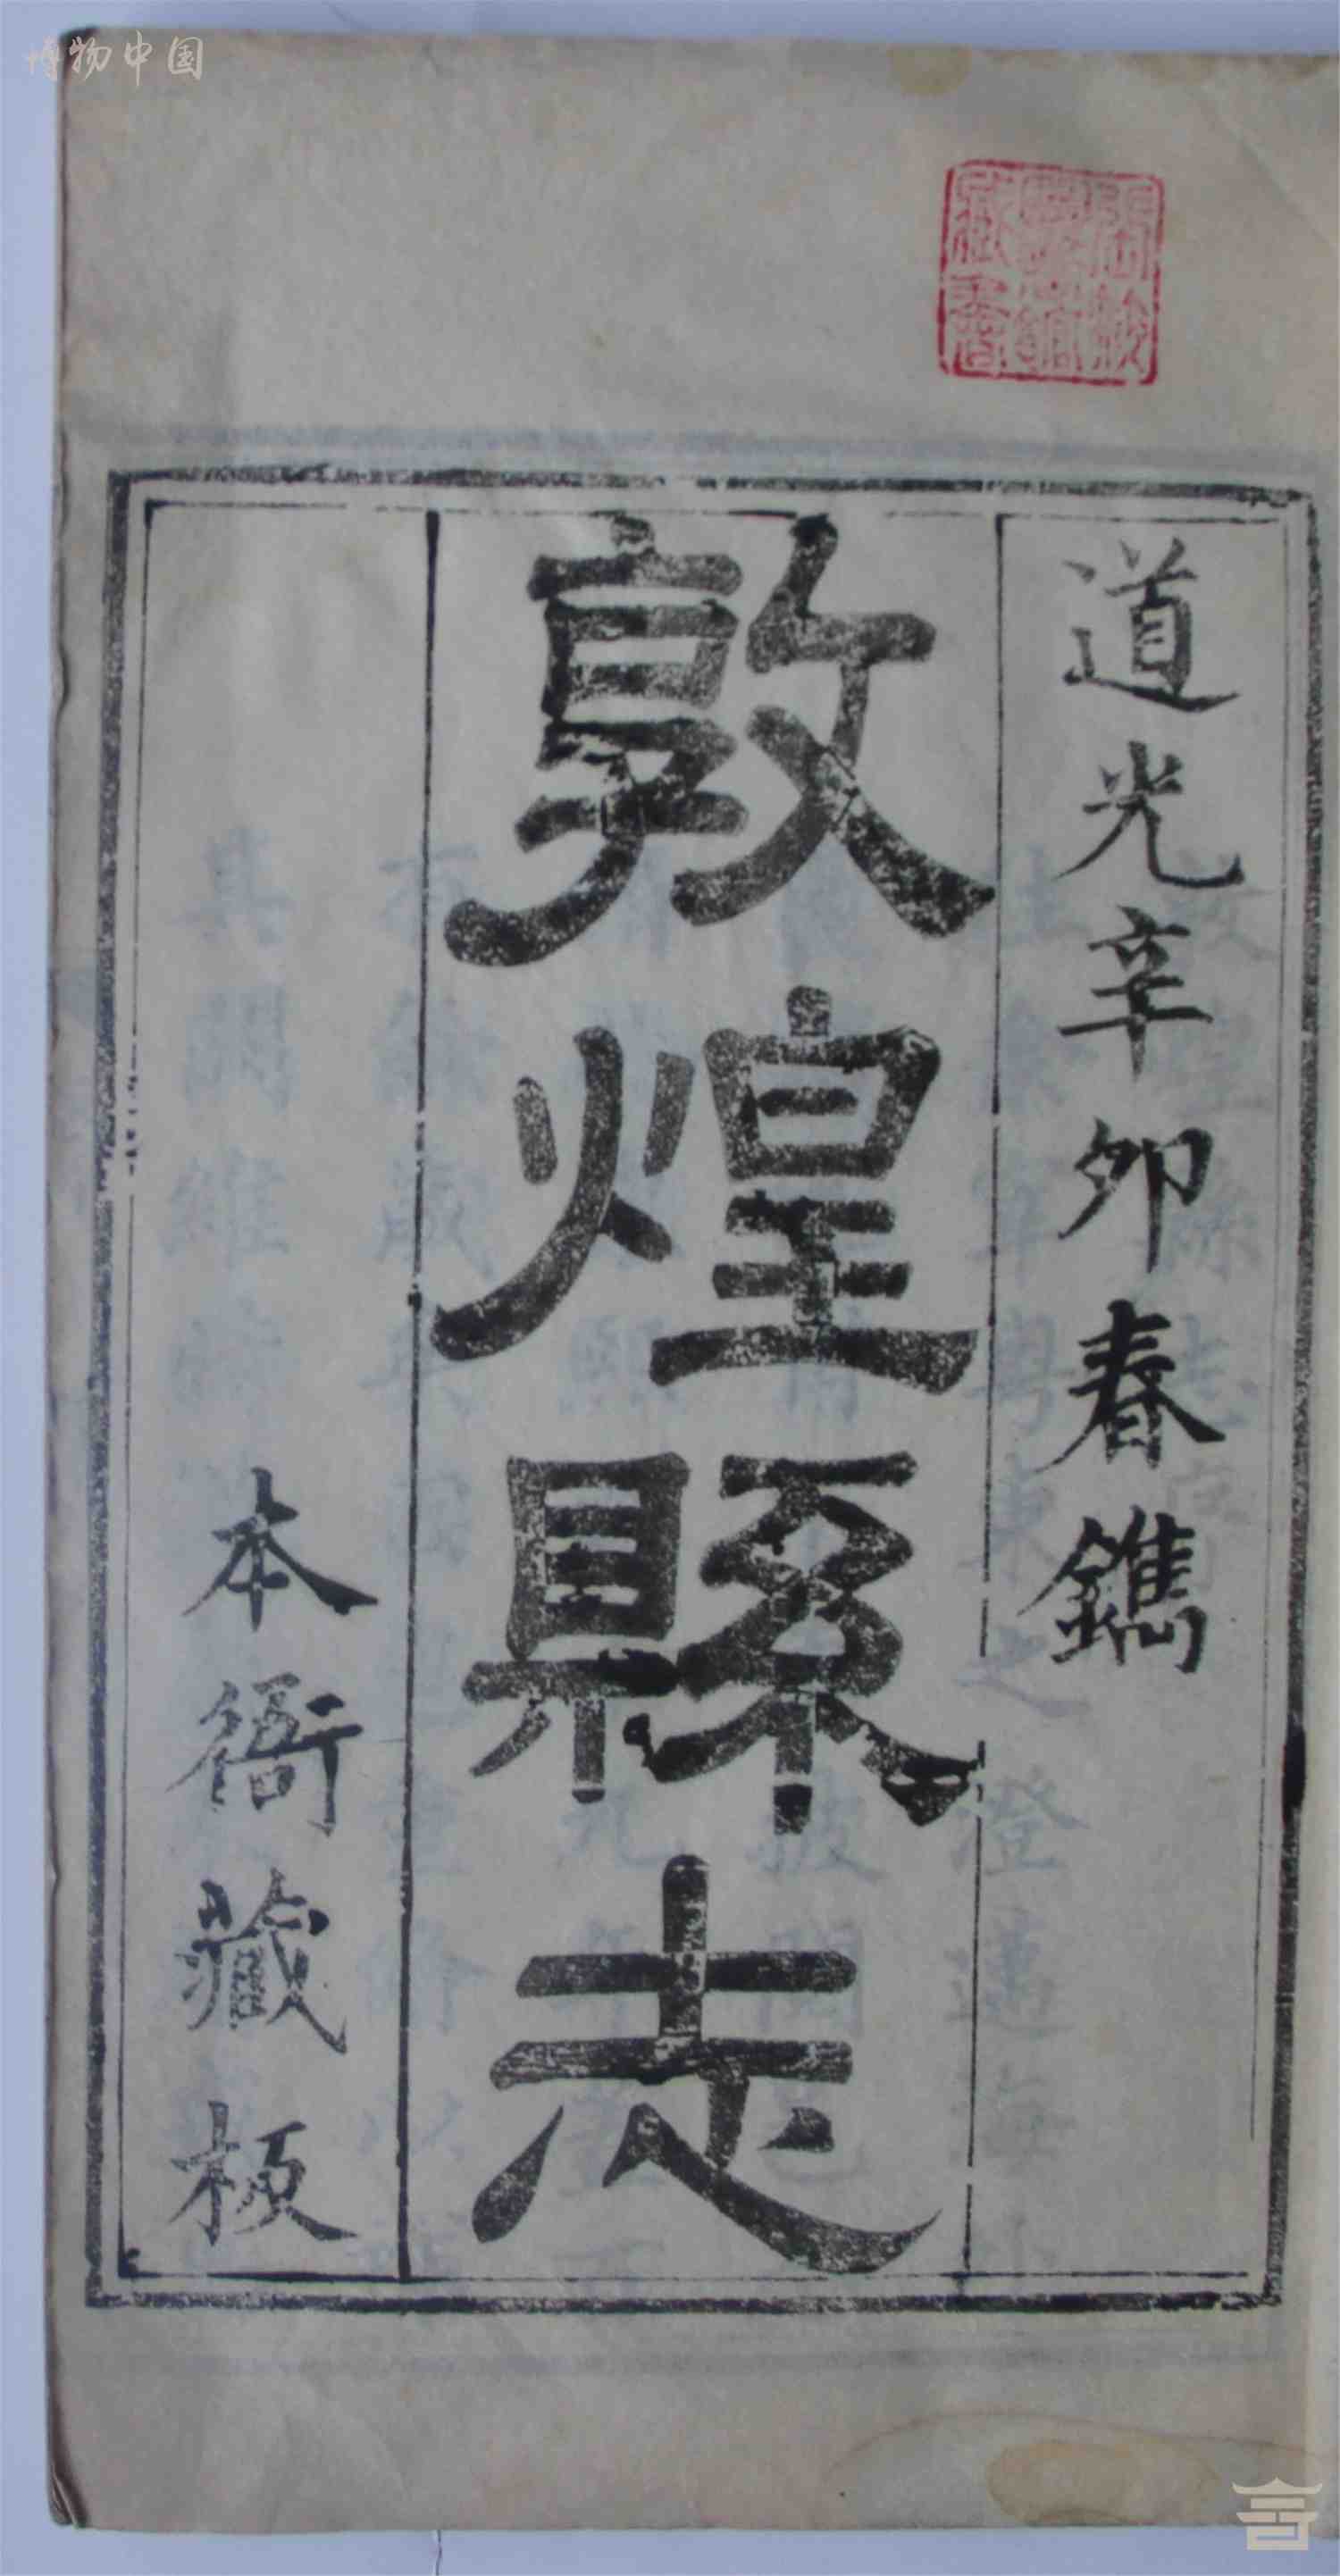 博物中国
道光辛卯春鐫
敦煌縣志
本衙藏板